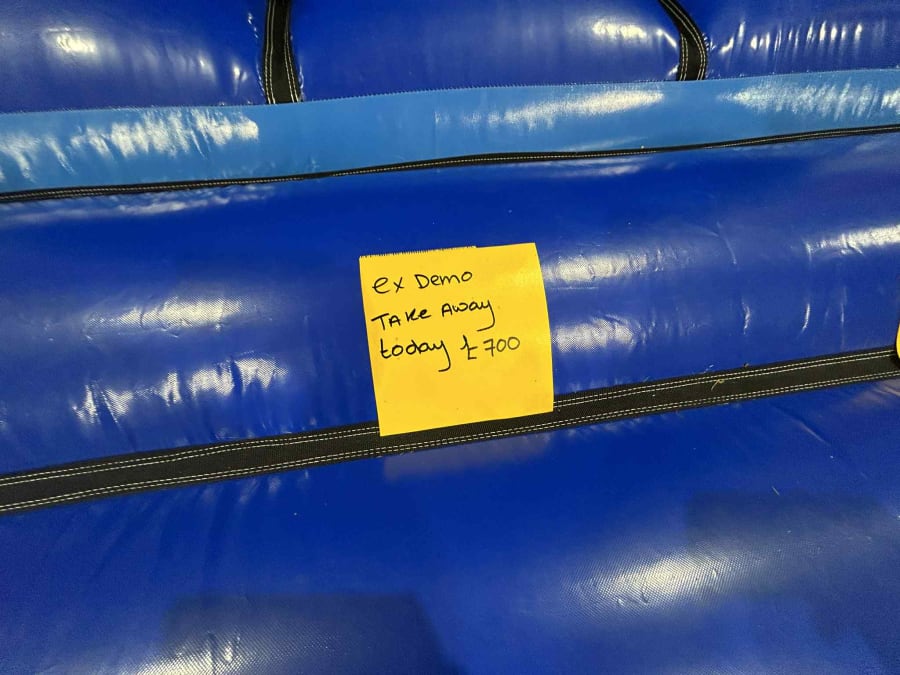 ex Demo
TAKe Away
today £700